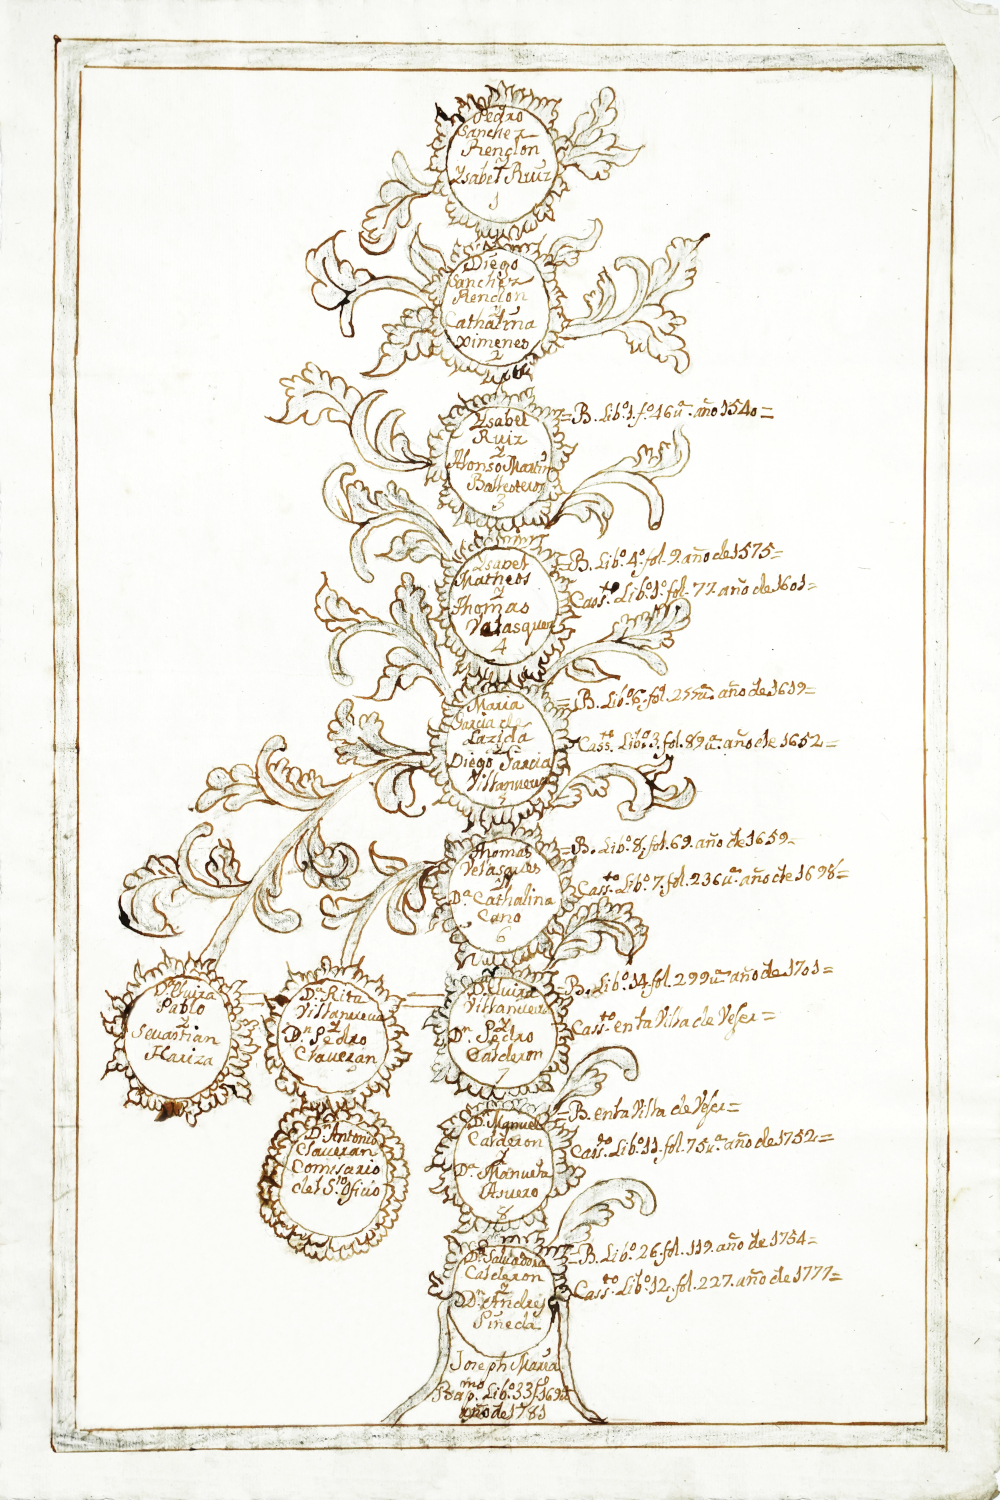 Pedro
Sanchez
Rendon
2
Ysabel Ruiz
1
Diego
Sanchez
Rendon
y
Cathalina
Ximenes
2
Ysabel
Ruiz
2
Alonso Martin
Ballesteros
3
= B. Lib.º 1. f.º 16 u.ª año 1540 =
Ysabel
Matheos
2
Thomas
Velasques
4
= B. Lib.º 4.º fol. 9. año de 1575 =
Cass.to Lib.º 1.º fol. 77. año de 1601 =
Maria
Garcia de
Larida
2
Diego Garcia
Villanueva
5
= B. Lib.º 6. fol. año de 1619 =
Cass.to Lib.º 3. fol. 89 u.ª año de 1652 =
Thomas
Velasques
2
D.ª Cathalina
Cano
6
= B. Lib.º 8. fol. 69. año de 1659 =
Cass.to Lib.º 7. fol. 236 u.ª año de 1698 =
Pablo
2
Sevastian
Hariza
D.ª Rita
Villanueva
2
D.n Pedro
Claveran
D.ª Luisa
Villanueva
2
D.n Pedro
Calderon
7
= B. Lib.º 14. fol. 299 u.ª año de 1701 =
Cass.to en la Villa de Vejer =
D.n Antonio
Claveran
Comisario
del S.to Oficio
D.n Manuel
Calderon
y
D.ª Manuela
Asuero
8
= B. en la Villa de Vejer =
Cas.to Lib.º 11. fol. 75 u.ª año de 1752 =
D.ª Salvadora
Calderon
2
D.n Andres
Pineda
= B. Lib.º 26. fol. 119. año de 1754 =
Cass.to Lib.º 12. fol. 227. año de 1777 =
Joseph Maria
Bap.mo Lib.º 33
año de 1781